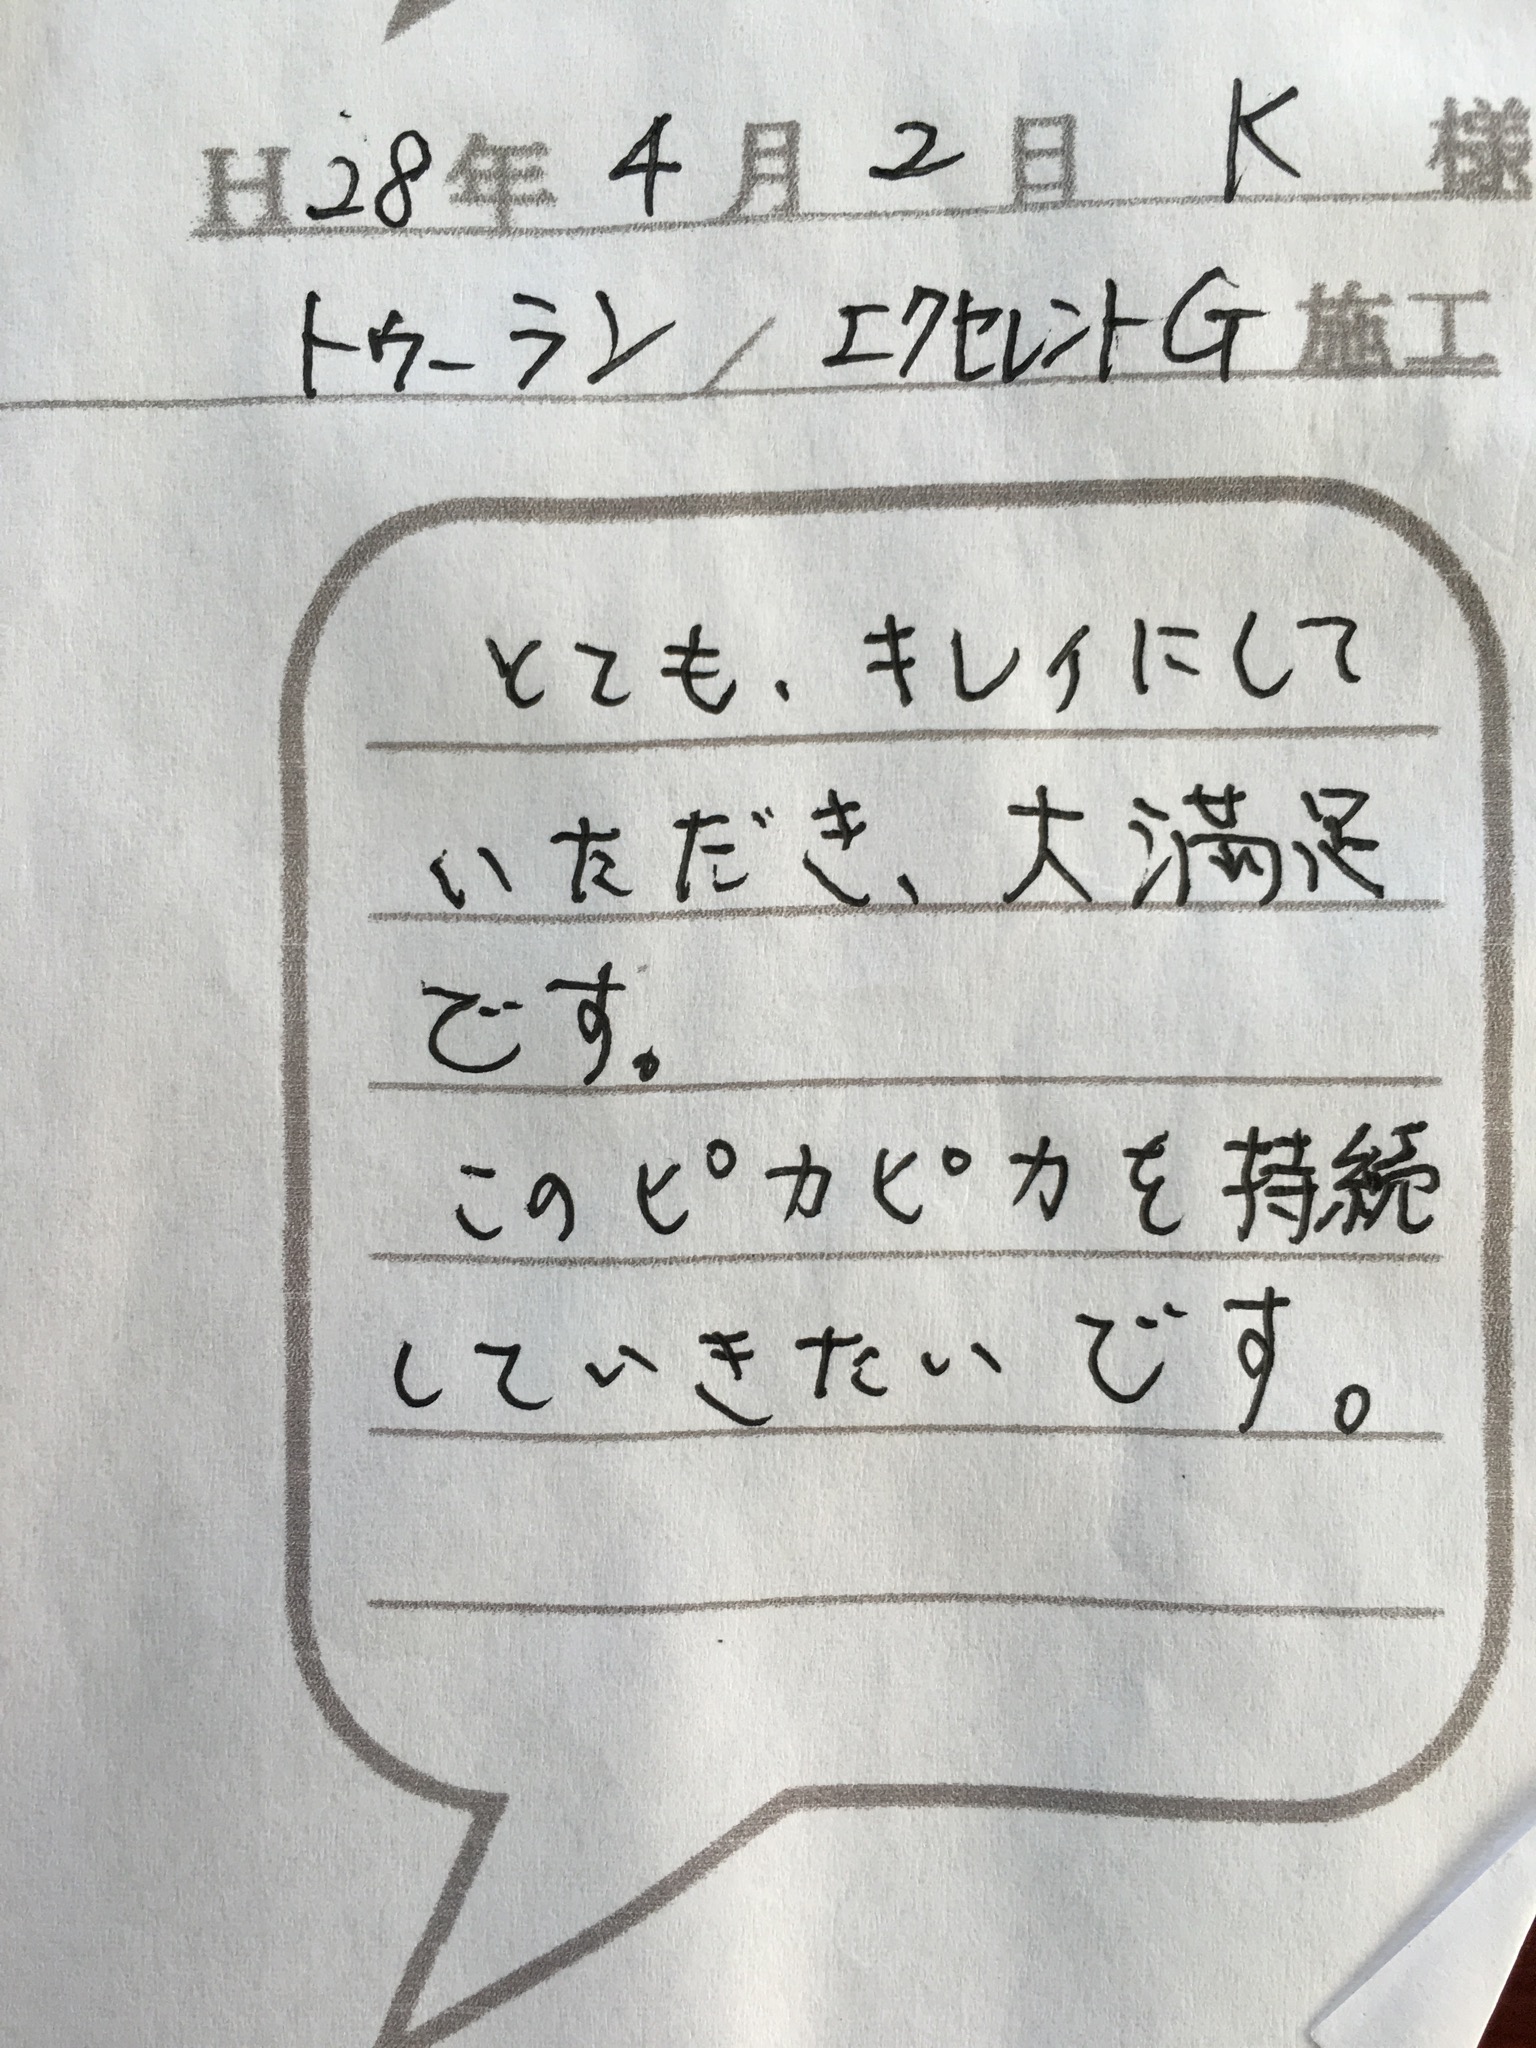 H28年4月2日 K 様
トゥーラン/エクセレントG 施工
とても、キレイにして
いただき、大満足
です。
このピカピカを持続
していきたいです。